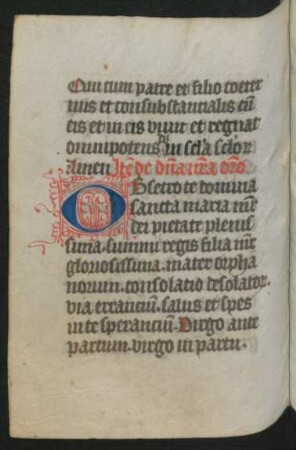 Qui cum patre et filio coeter
nus et consubstancialis eū
eis et in eis viuit et regnat
omnipotens In sclā sclor
Amen Itē de dn̄a nr̄a oro
Obsecro te domina
sancta maria mr̄
dei pietate plenis
sima. summi regis filia mr̄
gloriosissima. mater orpha
norum. consolatio desolator.
via erranciū. salus et spes
in te speranciū. Virgo ante
partum. virgo in partu.